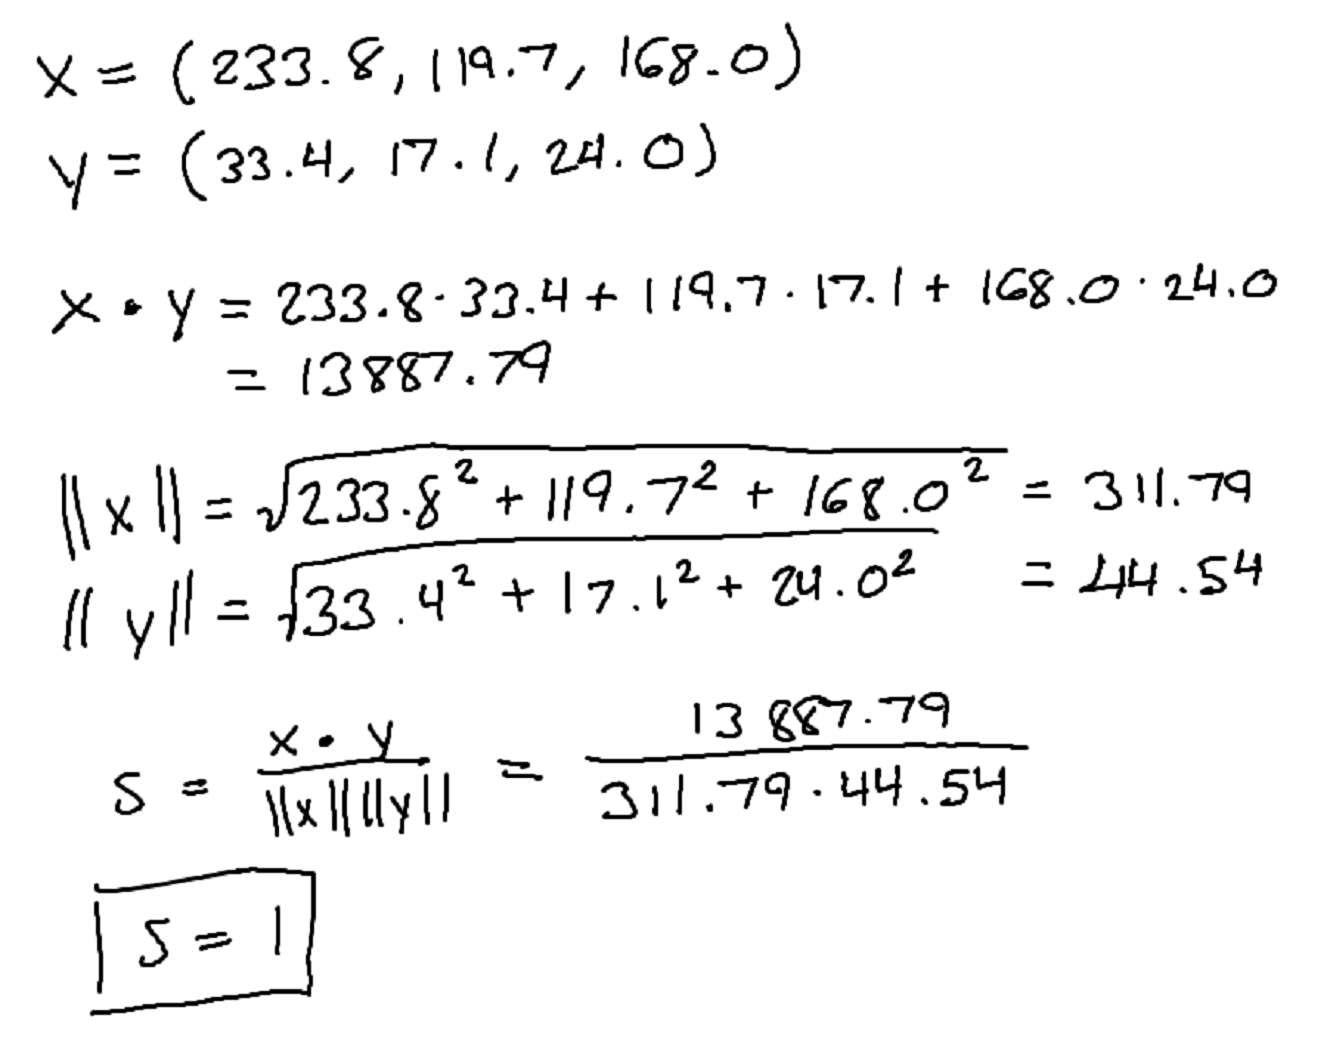 x = (233.8, 119.7, 168.0)
y = (33.4, 17.1, 24.0)
x • y = 233.8 · 33.4 + 119.7 · 17.1 + 168.0 · 24.0
= 13887.79
||x|| = √(233.8² + 119.7² + 168.0²) = 311.79
||y|| = √(33.4² + 17.1² + 24.0²) = 44.54
S = x • y / ||x|| ||y|| = 13887.79 / 311.79 · 44.54
S = 1